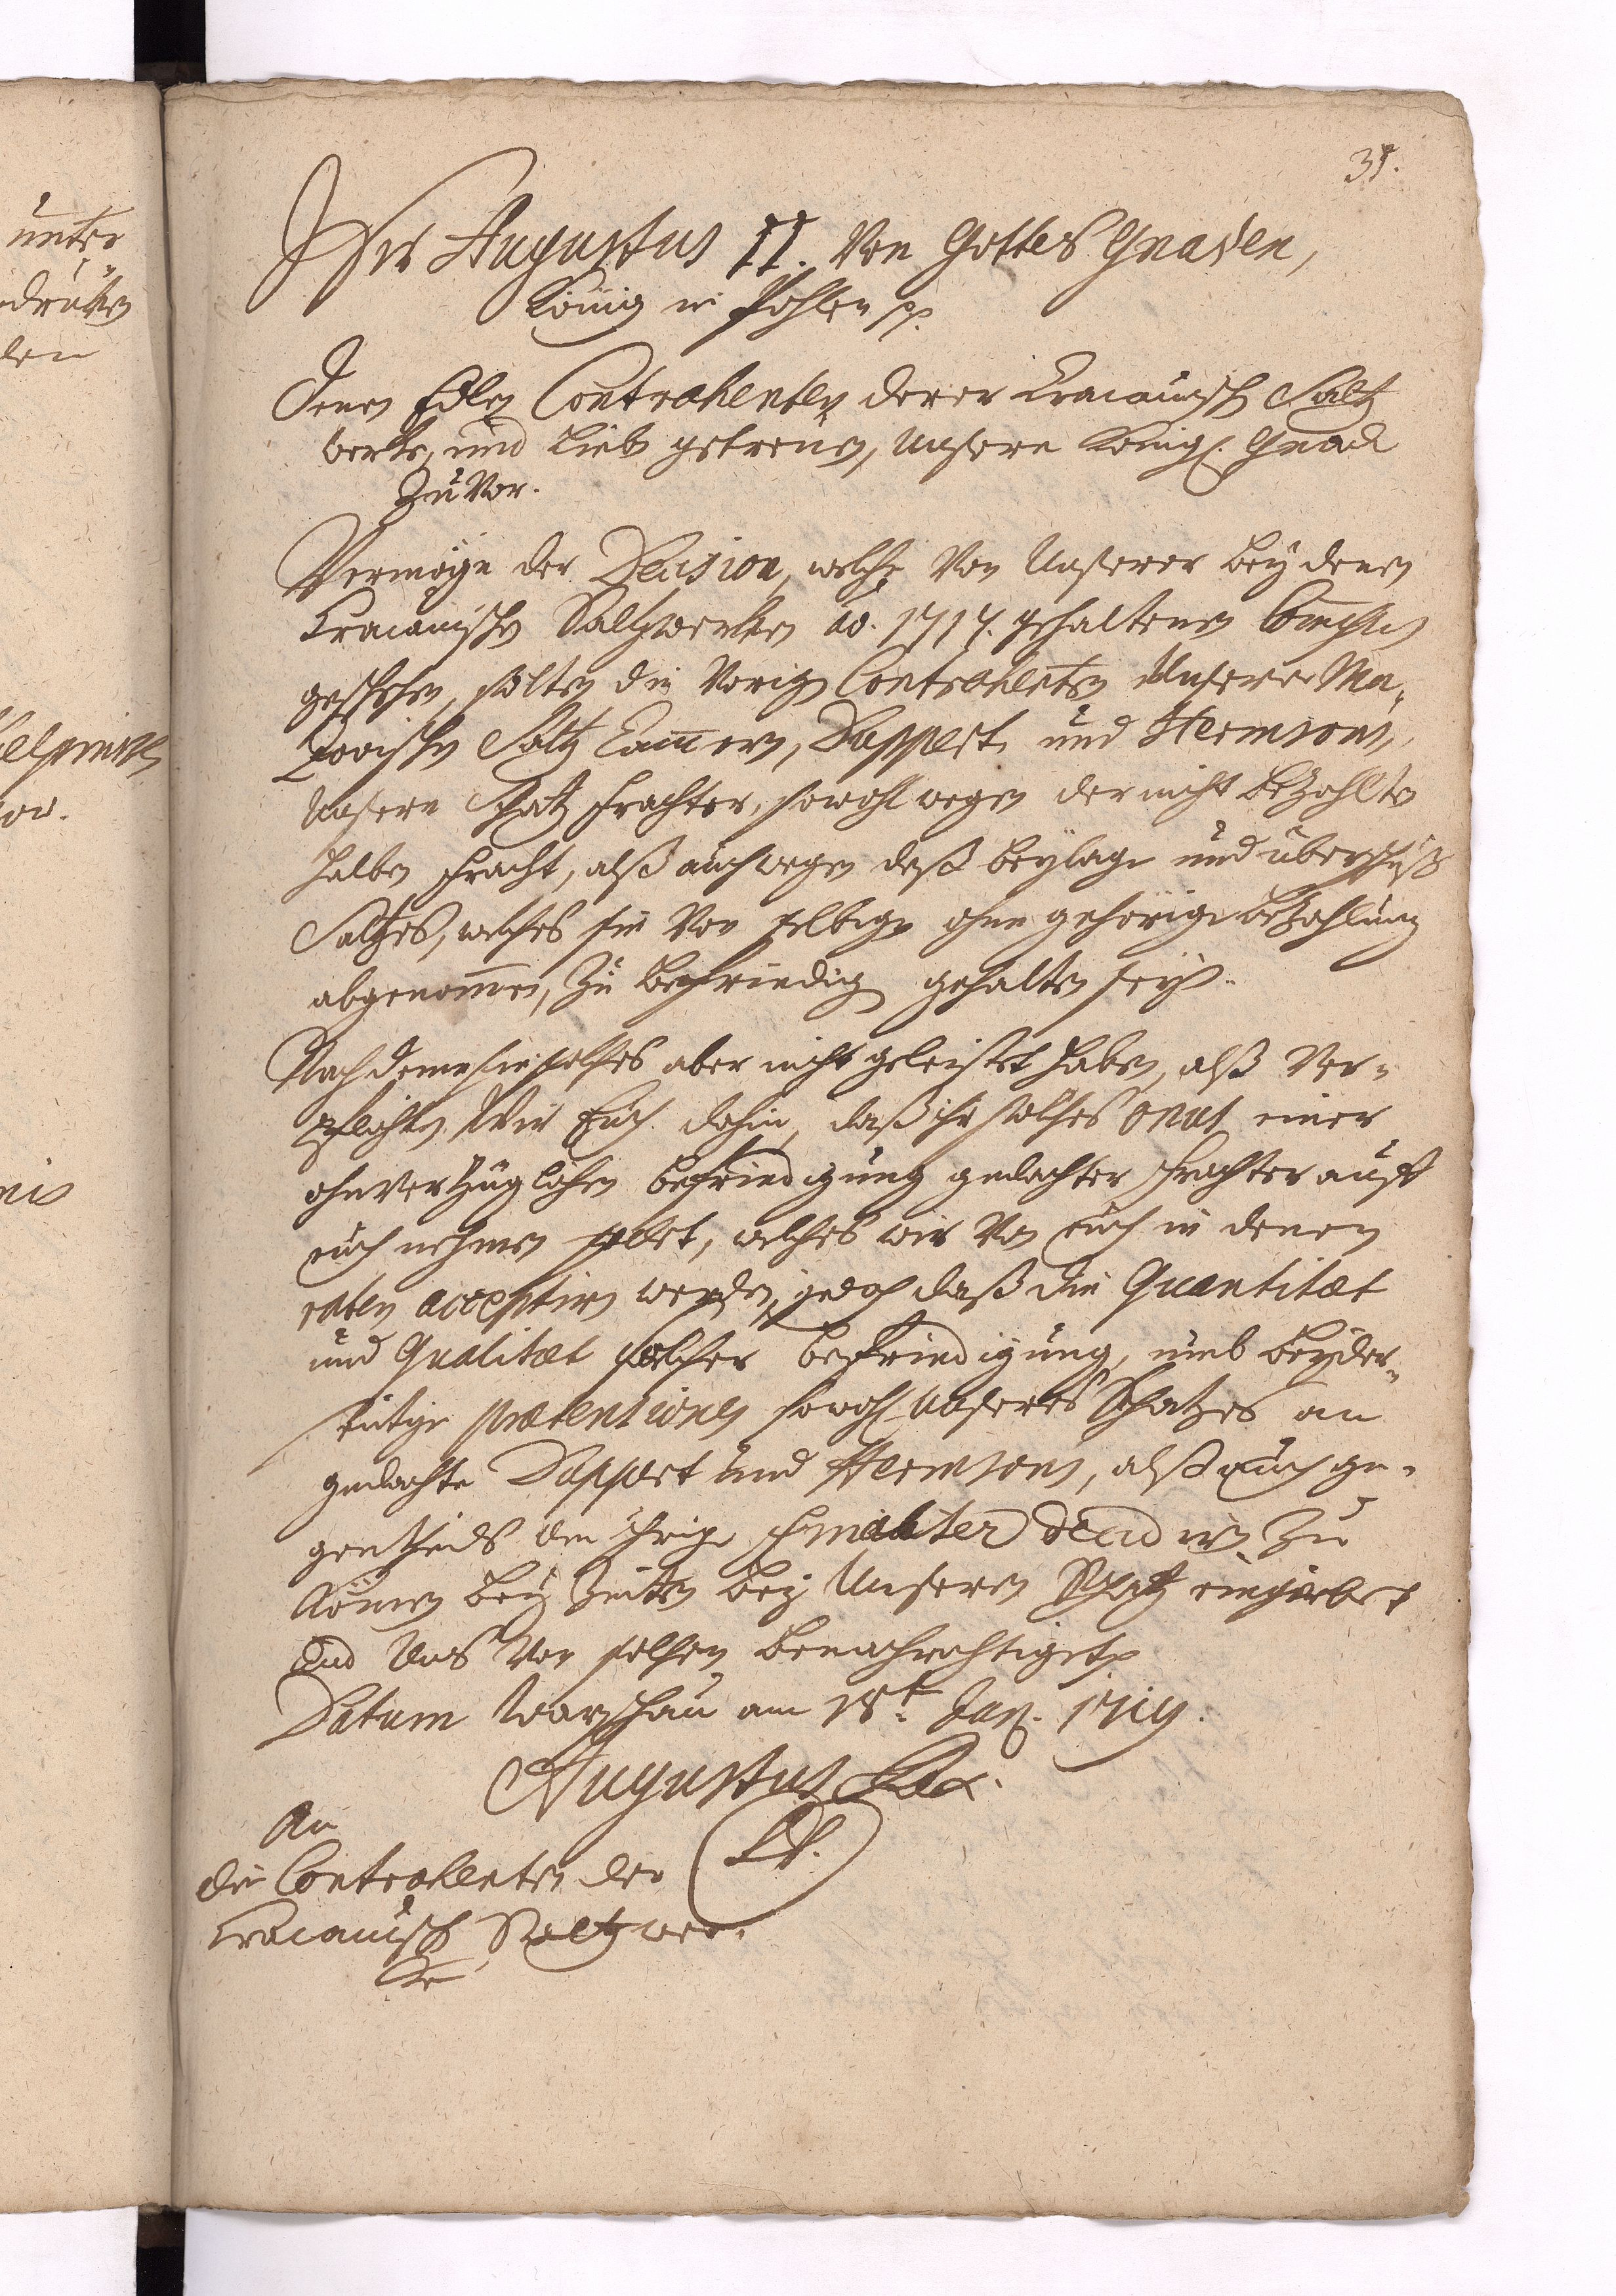 unter
drukten
len
or.
nis
31.
Wir Augustus II. von Gottes Gnaden,
König in Pohlen pp.
Denen Edlen Contrahenten derer Cracauisch. Saltz
wercke, und Lieb getreüen, unsere Königl. Gnad
zuvor.
Vermöge der Decision, welche von Unserer bey denen
Cracauischen Saltzwercken ao. 1717. gehaltenen
geschehen, solten die vorige Contrahenten Unserer Ma-
zovischen Saltz Cammern, Dassert und Hermsons,
unsere Schatz Frachter, sowohl wegen der nicht bezahlten
halben Fracht, alß auch wegen deß beylage und überschuß
Saltzes, welches sie von selbigen ohne gehörige bezahlung
abgenommen, zu befriedigen gehalten seyn.
Nachdeme sie solches aber nicht geleistet haben, alß ver-
pflichten Wir Euch dahin, daß ihr solches onus einer
ohnverzüglichen befriedigung gedachter Frachter auff
euch nehmen sollet, welches wir von euch in denen
raten acceptiren werden, jedoch daß die Quantitæt
und Qualitæt solcher befriedigung, umb beyder-
seitige prætensiones sowohl unseres Schatzes an
gedachte Dassert und Hermsons, alß auch ge-
gentheils der ihrigen zu
können bey Zeiten bey Unserem Schatz
und Uns von solchen benachrichtiget
Datum Warschau am 18t. Jan. 1719.
Augustus Rex.
An
die Contrahenten der (LS.)
Cracauisch. Saltzwer-
cke